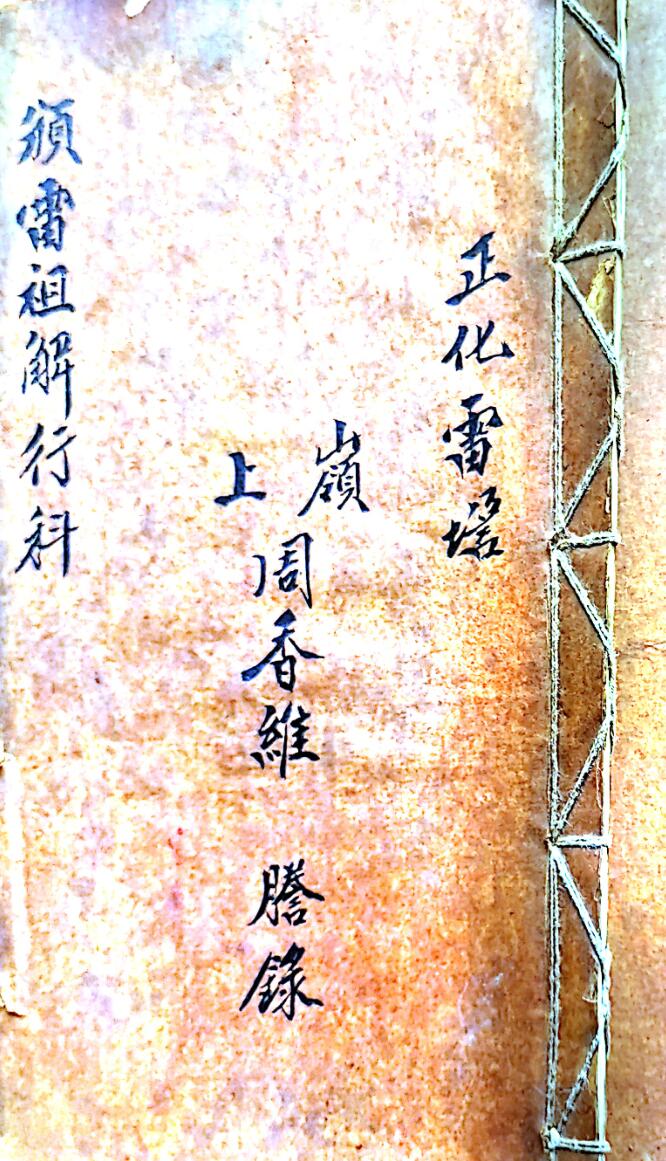 正化雷壇
嶺上周香維 謄錄
頒雷祖解行科